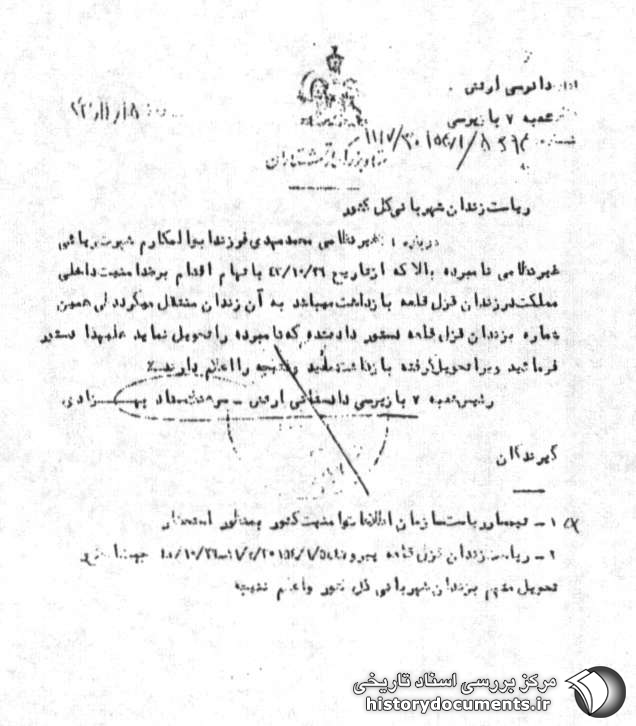 دادرسی ارتش
شعبه ۷ بازپرسی
شماره
بزرگ ارتشتاران
ریاست زندان شهربانی کل کشور
درباره : غیرنظامی محمدمهدی فرزند ابوالمکارم شهرت ربانی
غیرنظامی نامبرده بالا که از تاریخ ۴۲/۱۰/۲۶ باتهام اقدام برضد امنیت داخلی
مملکت در زندان قزل قلعه بازداشت میباشد به آن زندان منتقل میگردد طی همین
شماره بزندان قزل قلعه دستور داده شده که نامبرده را تحویل نماید علیهذا دستور
فرمائید ویرا تحویل گرفته بازداشت نمایند و نتیجه را اعلام دارند
رئیس شعبه ۷ بازپرسی دادستانی ارتش - سرهنگ ستاد بهزادی
گیرندگان
۱ - تیمسار ریاست سازمان اطلاعات و امنیت کشور بمنظور استحضار
۲ - ریاست زندان قزل قلعه پیرو جهت
تحویل متهم بزندان شهربانی کل کشور و اعلام نتیجه
مرکز بررسی اسناد تاریخی
historydocuments.ir